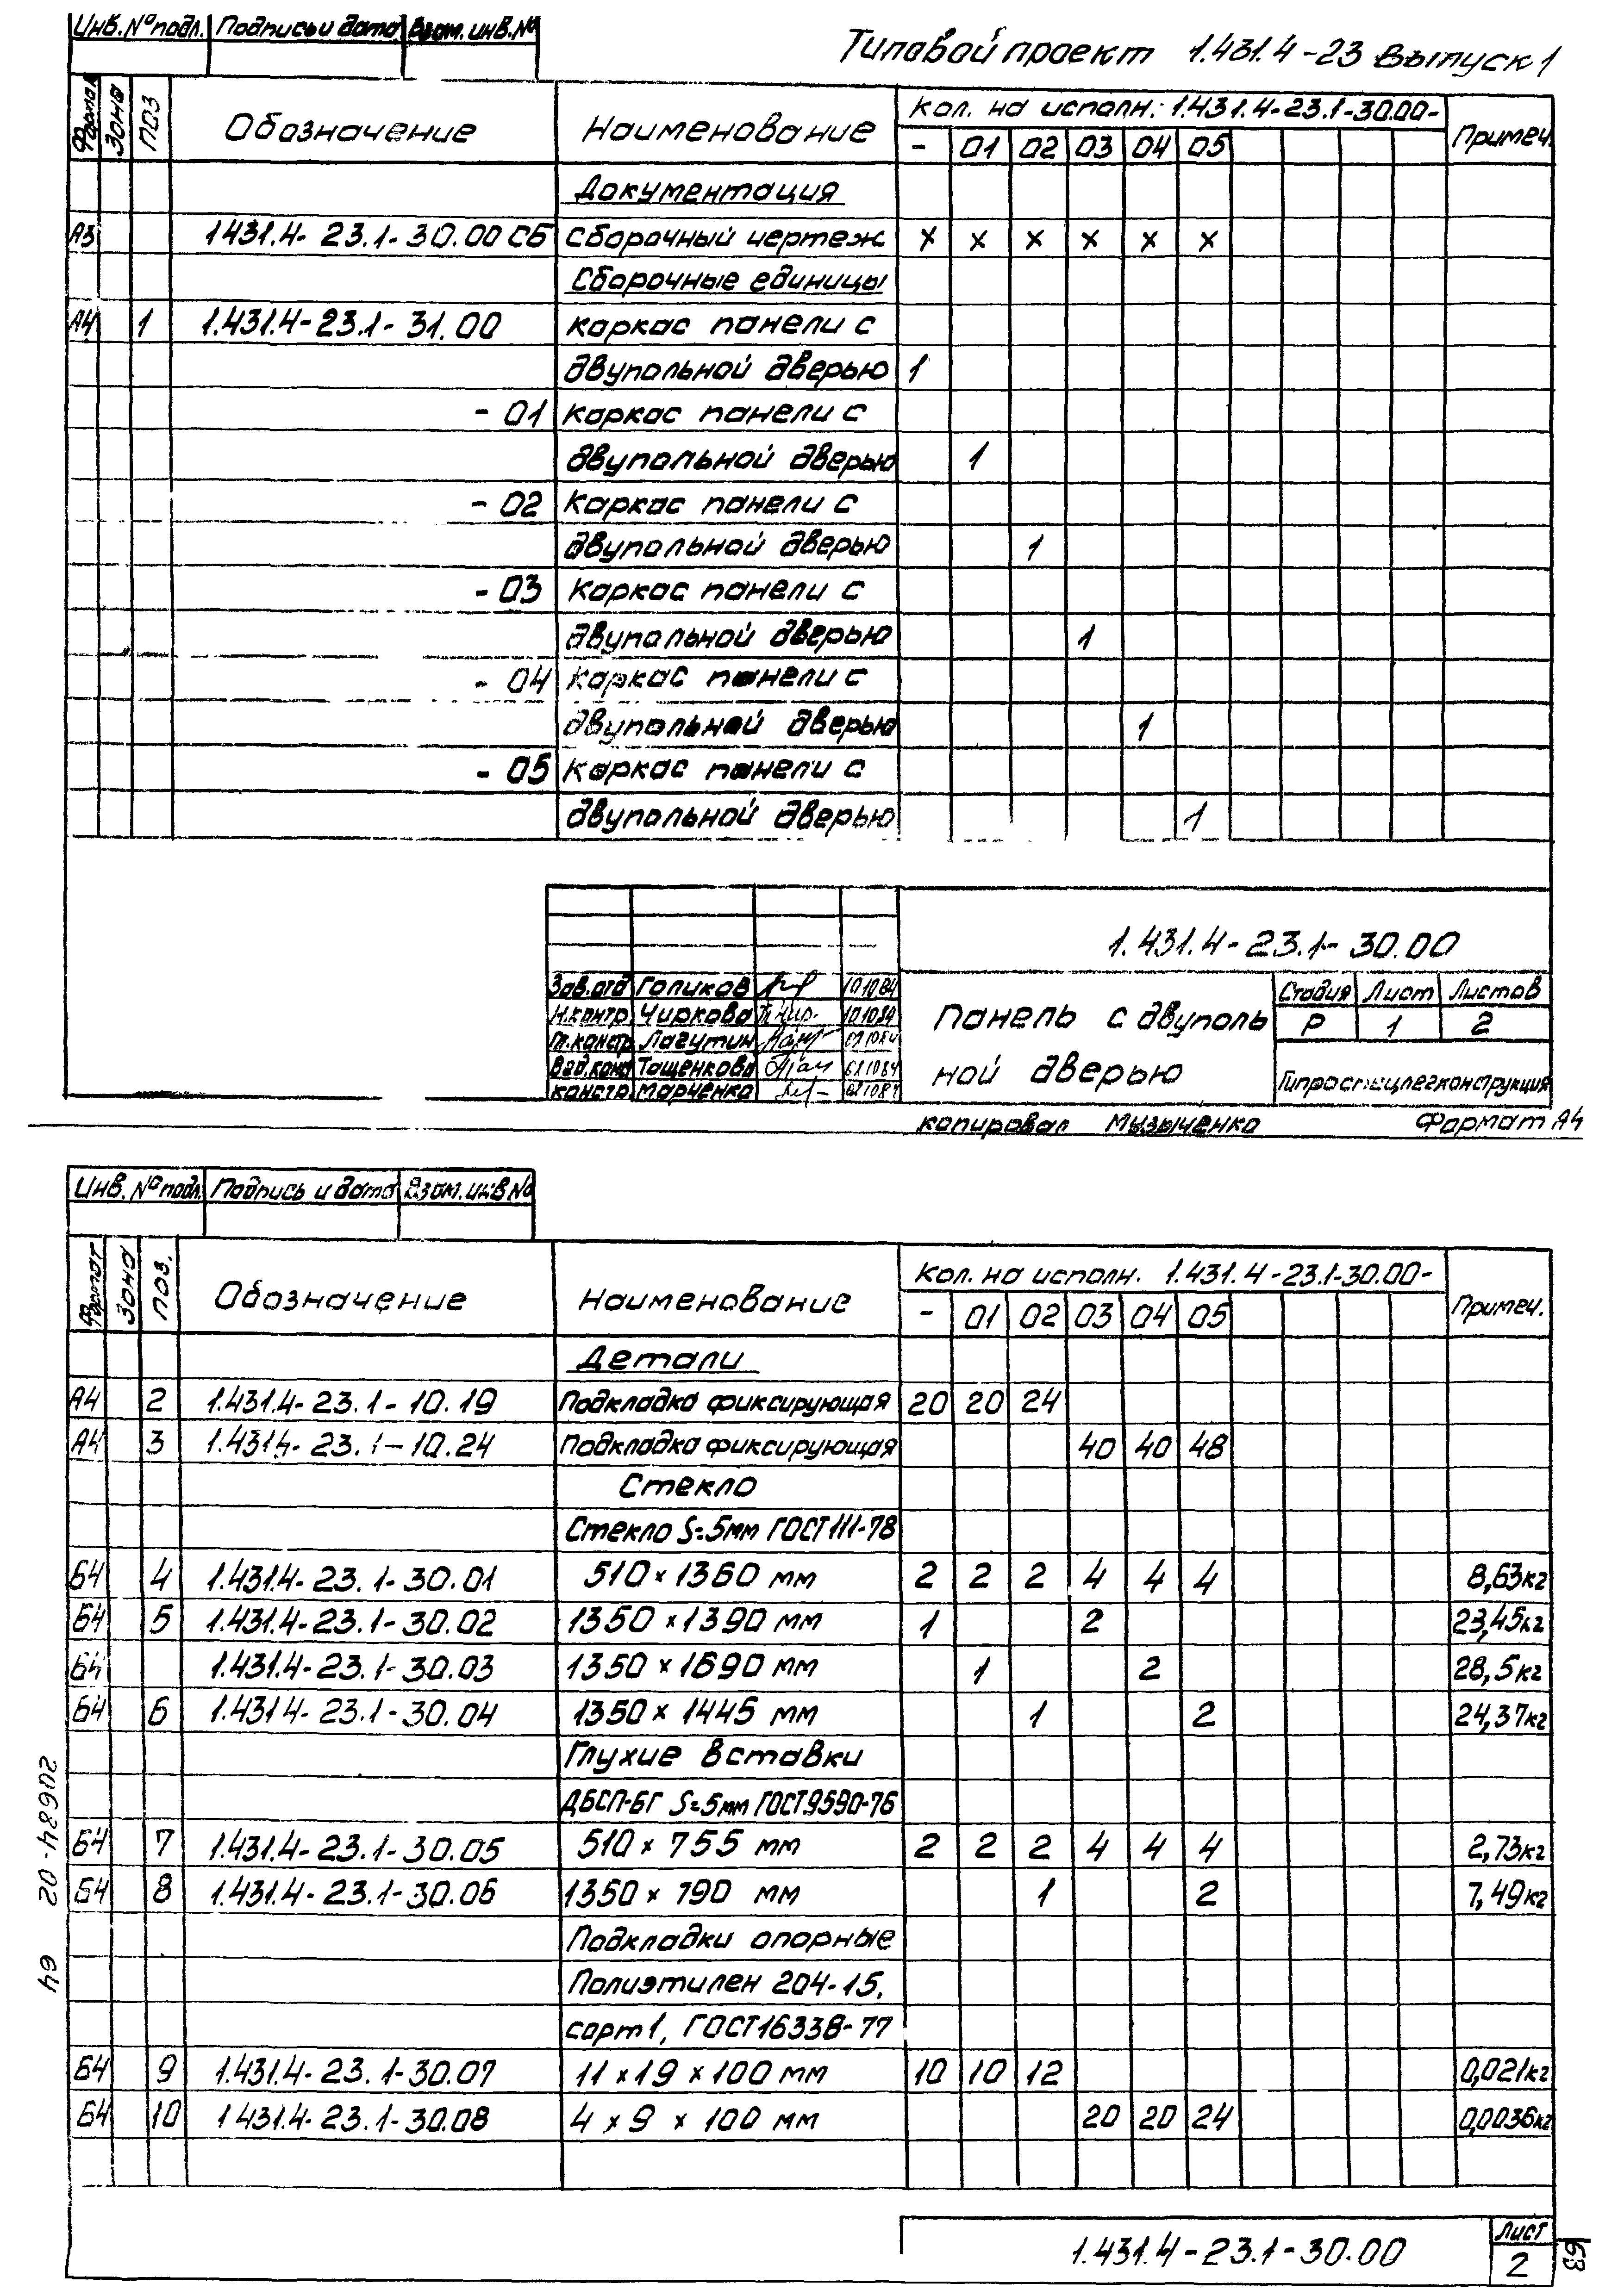 Инв. № подл. Подпись и дата Взам. инв. №
Типовой проект 1.431.4-23 Выпуск 1
Формат Зона Поз Обозначение Наименование Кол. на исполн.: 1.431.4-23.1-30.00- Примеч.
- 01 02 03 04 05
Документация
А3 1431.4-23.1-30.00 СБ Сборочный чертеж х х х х х х
Сборочные единицы
А4 1 1.431.4-23.1-31.00 Каркас панели с
двупольной дверью 1
- 01 Каркас панели с
двупольной дверью 1
- 02 Каркас панели с
двупольной дверью 1
- 03 Каркас панели с
двупольной дверью 1
- 04 Каркас панели с
двупольной дверью 1
- 05 Каркас панели с
двупольной дверью 1
1.431.4-23.1-30.00
Зав.отд Голиков 101084
Н.контр Чиркова 101084
Гл.констр Лагутин
Вед.конс Тащенкова
констр. Марченко
Панель с двуполь
ной дверью
Стадия Лист Листов
Р 1 2
Гипроспецлегконструкция
копировал Мызыченко Формат А4
Инв. № подл. Подпись и дата Взам. инв №
Формат Зона Поз. Обозначение Наименование Кол. на исполн. 1.431.4-23.1-30.00- Примеч.
- 01 02 03 04 05
Детали
А4 2 1.431.4-23.1-10.19 Подкладка фиксирующая 20 20 24
А4 3 1.4314-23.1-10.24 Подкладка фиксирующая 40 40 48
Стекло
Стекло S=5мм ГОСТ 111-78
Б4 4 1.431.4-23.1-30.01 510×1360 мм 2 2 2 4 4 4 8,63кг
Б4 5 1.431.4-23.1-30.02 1350×1390 мм 1 2 23,45кг
Б4 1.431.4-23.1-30.03 1350×1690 мм 1 2 28,5кг
Б4 6 1.4314-23.1-30.04 1350×1445 мм 1 2 24,37кг
Глухие вставки
ДБСП-БГ S=5мм ГОСТ.9590-76
Б4 7 1.431.4-23.1-30.05 510×755 мм 2 2 2 4 4 4 2,73кг
Б4 8 1.431.4-23.1-30.06 1350×790 мм 1 2 7,49кг
Подкладки опорные
Полиэтилен 204-15,
сорт 1, ГОСТ 16338-77
Б4 9 1.431.4-23.1-30.07 11×19×100 мм 10 10 12 0,021кг
Б4 10 1431.4-23.1-30.08 4×9×100 мм 20 20 24 0,0036кг
20684-02 64
1.431.4-23.1-30.00
Лист
2
63